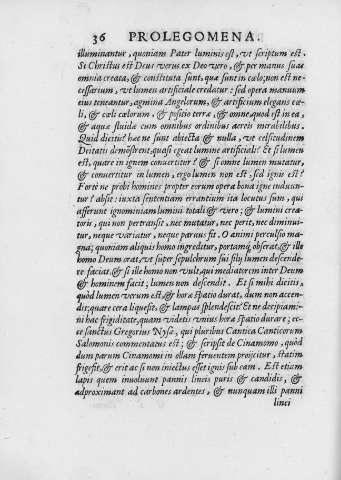 36 PROLEGOMENA.
illuminantur, quoniam Pater luminis est, ut scriptum est.
Si Christus est Deus verus ex Deo vero, & per manus suas
omnia creata, & constituta sunt, quæ sunt in cælo; non est ne-
cessarium, ut lumen artificiale credatur: sed opera manuum
eius teneantur, agmina Angelorum, & artificium elegans cæ-
li, & cæli cælorum, & positio terræ, & omne, quod est in ea,
& aquæ fluidæ cum omnibus ordinibus aereis mirabilibus.
Quid dicitis? hæ ne sunt abiecta & nulla, ut celsitudinem
Deitatis demõstrent, quasi egeat lumine artificiali? Et si lumen
est, quare in ignem convertitur? & si omne lumen mutatur,
& convertitur in lumen, ergo lumen non est, sed ignis est?
Forè ne probi homines propter eorum opera bona igne induũtu-
tur? absit: iuxta sententiam errantium ita locutus sum, qui
afferunt ignominiam lumini totali & vero; & lumini crea-
toris, qui non pertransit, nec mutatur, nec perit, nec diminui-
tur, neque variatur, neque parvus fit. O animi perculsio ma-
gna; quoniam aliquis homo ingreditur, portamq́; obserat, & ille
homo Deum orat, ut super sepulcrum sui filij lumen descende-
re faciat, & si ille homo non vult, qui mediatorem inter Deum
& hominem facit; lumen non descendit. Et si mihi dicitis,
quòd lumen verum est, & horæ spatio durat, dum non accen-
dit; quare cera liquefit, & lampas splendescit? Et ne decipiami-
ni hac frigiditate, quam videtis unius horæ spatio durare; ec-
ce sanctus Gregorius Nyss. qui pluribus Cantica Canticorum
Salomonis commentatus est; & scripsit de Cinamomo, quòd
dum parum Cinamomi in ollam ferventem proijcitur, statim
frigefit, & erit ac si non iniectus esset ignis sub eam. Est etiam
lapis quem involuunt pannis lineis puris & candidis, &
adproximant ad carbones ardentes, & nunquam illi panni
linci